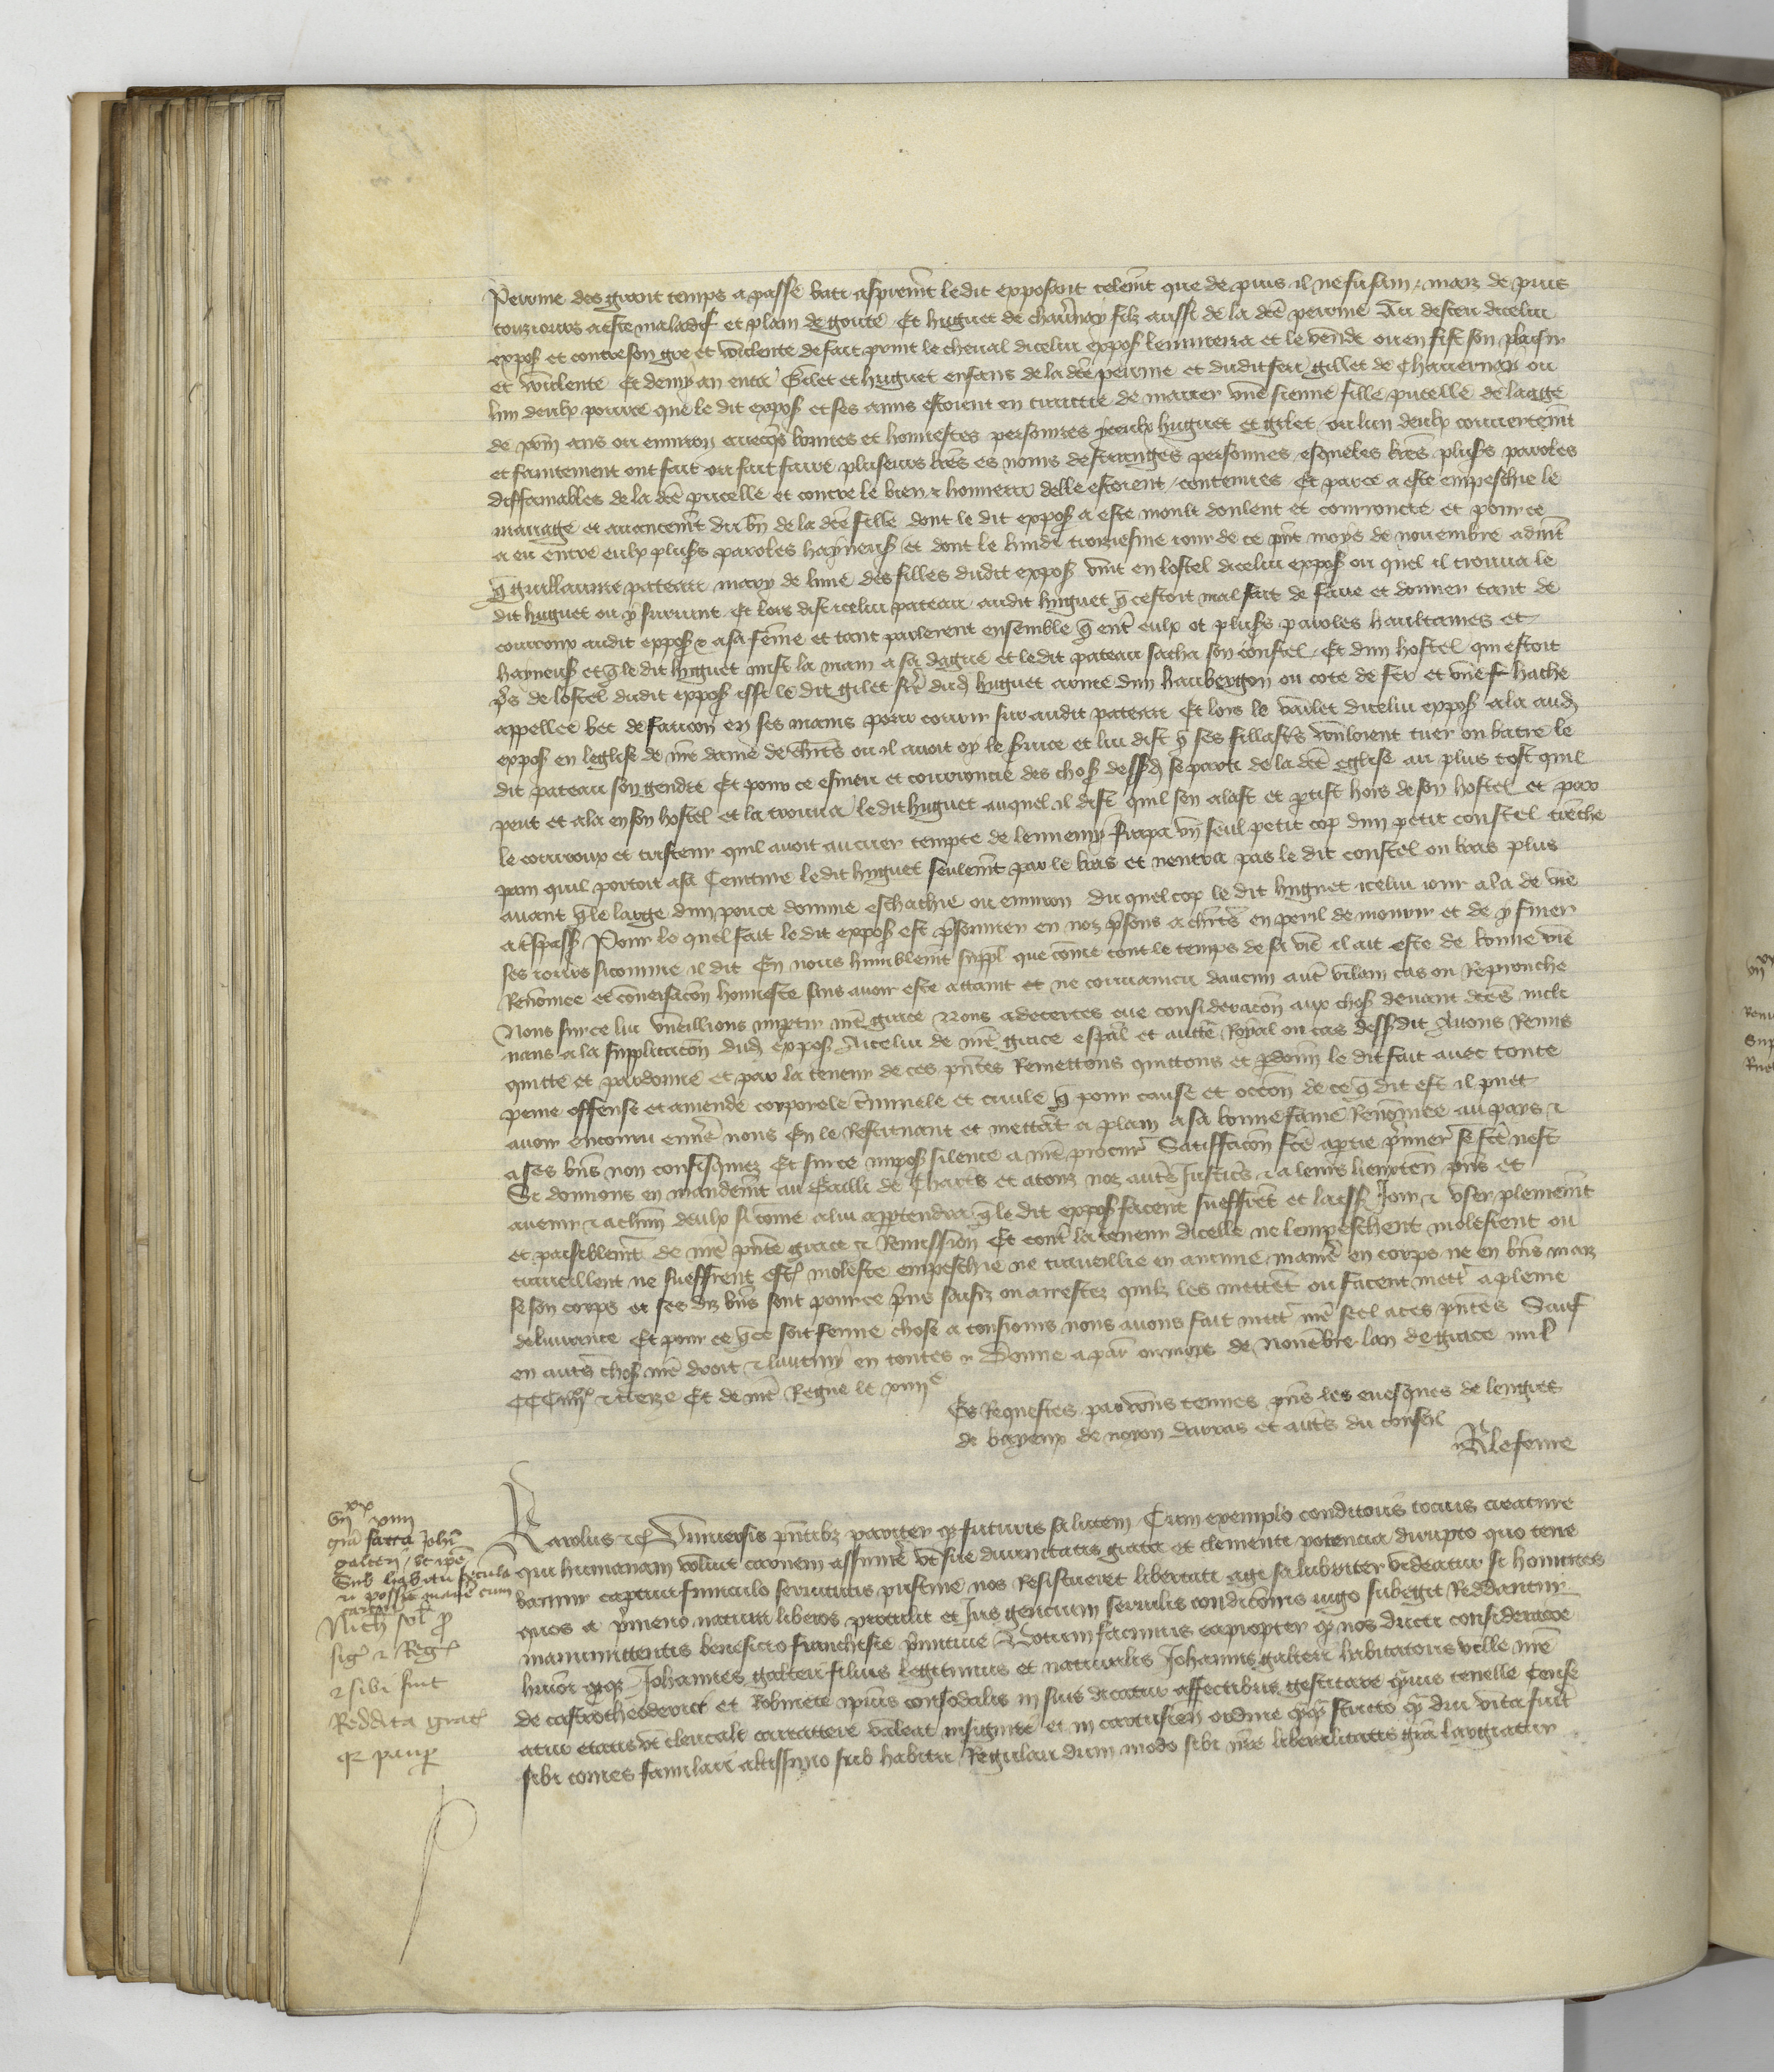 Perrine des grant temps a passe bati asprem̃t ledit exposant telem̃t que de puis il ne fu sain / maiz de puis
touziours a este maladif et plain de goute Et huguet de chau̾nay filz aussi de la dcẽ perrine Au desceu dicelui
expoſ et contre son gre et voulente de fait print le cheual dicelui expoſ lemmena et le vendi ou en fist son plaisir
et voulente Et demy an enca Gilet et huguet enfans de la dcẽ perrine et dudit feu gillet de Chauernay ou
lun deulx pource que le dit expoſ et ses amis estoient en traittie de marier vne sienne fille pucelle de laage
de xviij ans ou enuiron auecq̃s bonnes et honnestes personnes yceulx huguet et gilet ou lun deulx couuertem̃t
et faintement ont fait ou fait faire pluseurs lrẽs es noms destranges personnes esqueles lrẽs plusrs paroles
diffamables de la dcẽ pucelle et contre le bien & honneur delle estoient contenues Et parce a este empeschie le
mariage et auancem̃t du bñ de la dcẽ fille dont le dit expoſ a este moult doulent et courroucie et pour ce
a eu entre eulx plusrs paroles hayneuſ et dont le lundi treziesme iour de ce pñt moys de nouembre aduint
q̃ guillaume pateau mary de lune des filles dudit expoſ vint en lostel dicelui expoſ ou quel il trouua le
dit huguet ou y suruint Et lors dist icelui pateau audit huguet q̃ cestoit mal fait de faire et donner tant de
courroux audit expoſ & a sa fẽme et tant parlerent ensemble q̃ entr̾ eulx ot plusrs paroles haultaines et
hayneuſ et q̃ le dit huguet mist la main a sa dague et ledit pateau sacha son coustel Et dun hostel qui estoit
pr̾s de lostel dudit expoſ issi le dit gilet fre̾ dud̾ huguet arme dun haubergon ou cote de fer et vne hache
appellee bec de faucon en ses mains pour courir sur audit pateau Et lors le varlet dicelui expoſ ala aud̾
expoſ en leglise de nrẽ dame de Chartrẽs ou il auoit oy le seruice et lui dist q̃ ses fillastrẽs vouloient tuer ou batre le
dit pateau son gendre Et pour ce esmeu et courroucie des choſ dessusd̾ se parti de la dcẽ eglise au plus tost quil
peut et ala en son hostel et la trouua ledit huguet auquel il dist quil sen alast et ptist hors de son hostel et par
le courroux et tristeur quil auoit au cuer tempte de lennemy frapa vn seul petit cop dun petit coustel trẽche
pain quil portoit a sa Ceinture ledit huguet seulem̃t par le bras et nentra pas le dit coustel ou bras plus
auant q̃ le large dun pouce domme eschachie ou enuiron du quel cop le dit huguet icelui iour ala de vie
a trespaſſ Pour le quel fait le dit expoſ est prisonnier en noz prisons a chartrẽs en peril de mourir et de y finer
ses iours sicomme il dit En nous humblem̃t suppl̃ que cõme tout le temps de sa vie il ait este de bonne vie
Renõmee et conuersacõn honneste sans auoir este attaint et ne conuaincu daucun autr̾ vilain cas ou Reprouche
Nous sur ce lui vueillions impartir nrẽ grace Nous adecertes eue consideracõn aux choſ deuant dcẽs incli
nans a la supplicacõn dud̾ expoſ A icelui de nrẽ grace esp̃al et auctte Royal ou cas dessusdit Auons Remis
quittie et pardonne et par la teneur de ces pñtes Remettons quittons et pardonñ le dit fait auec toute
peine offense et amende corporele crĩminele et ciuile q̃ pour cause et occõn de ce q̃ dit est il puet
auoir encouru enurẽ nous En le Restituant et mettãt a plain a sa bonne fame Renõmee au pays &
a ses bñs non confisquez Et sur ce imposõ silence a nrẽ procur̾ Satisfacõn fcẽ a partie primier̾ se fcẽ nest
Si donnons en mandem̃t au Bailli de Chartrẽs et a touz noz autrẽs Justiciẽs & a leurs lieuxtẽn pñs et
auenir & a chũn deulx sicõme a lui appartendra q̃ le dit expoſ facent sueffrẽt et laissẽ Joir & vser plenem̃t
et paisiblem̃t de nrẽ pñte grace & Remission Et contr̾ la teneur dicelle ne lempeschent molestent ou
trauaillent ne sueffrent estr̾ moleste empeschie ne trauaillie en aucune manier̾ en corps ne en bñs maiz
se son corps et ses diz bñs sont pour ce prins saisiz ou arrestez quilz les mettẽt ou facent mettr̾ a pleine
deliurance Et pour ce q̃ ce soit ferme chose a tousiours nous auons fait mettr̾ nrẽ seel a ces pñtes Sauf
en autrẽs choſ nrẽ droit & lautruy en toutes Donne a par̾ ou moys de Nouẽbre lan de grace mil
CCC iiijxx & treze Et de nrẽ Regne le xiiije
Es Requestes par vous tenues pñs les euesques de lengres
de bayeux de noyon darras et autrẽs du conseil
viixx xiiii
grã facta Joh̃i
galteri / vt ip̃e
Sub habitu secula
ri possit maner̾ cum
Nich̃ sol̃ p
sig̃ & Reg̃
& sibi fuit
Reddita grat̃
qr paup
Karolus &c Vniuersis pñtibz pariter qz futuris salutem Cum exemplo conditoris tocius creature
qui humanam voluit carnem assumẽ vt sue diuinitatis gratia et clementi potencia dirupto quo tene
bamur captiui vinculo seruitutis pristine nos Restitueret libertati agi salubriter videatur si homines
quos a primeuo natura liberos protulit et Jus gencium seruilis condicõnis iugo subegit Reddantur
manumittentis beneficio franchisie primitiue Notum facimus eapropter qz nos ducti consideracõe
Johannes galteri filius legitimus et naturalis Johannis galteri habitatoris ville nrẽ
de castrotheoderici et Robinete ipius consodalis in suis dicatur affectibus gestitare q̃uis tenelle Cense
atur etatis vt clericali carattere valeat insigniri et in cartusień ordine stricto diu vita fuit
sibi comes famulari altissimo sub habitu Regulari dum modo sibi nrẽ liberalitatis grã largiatur